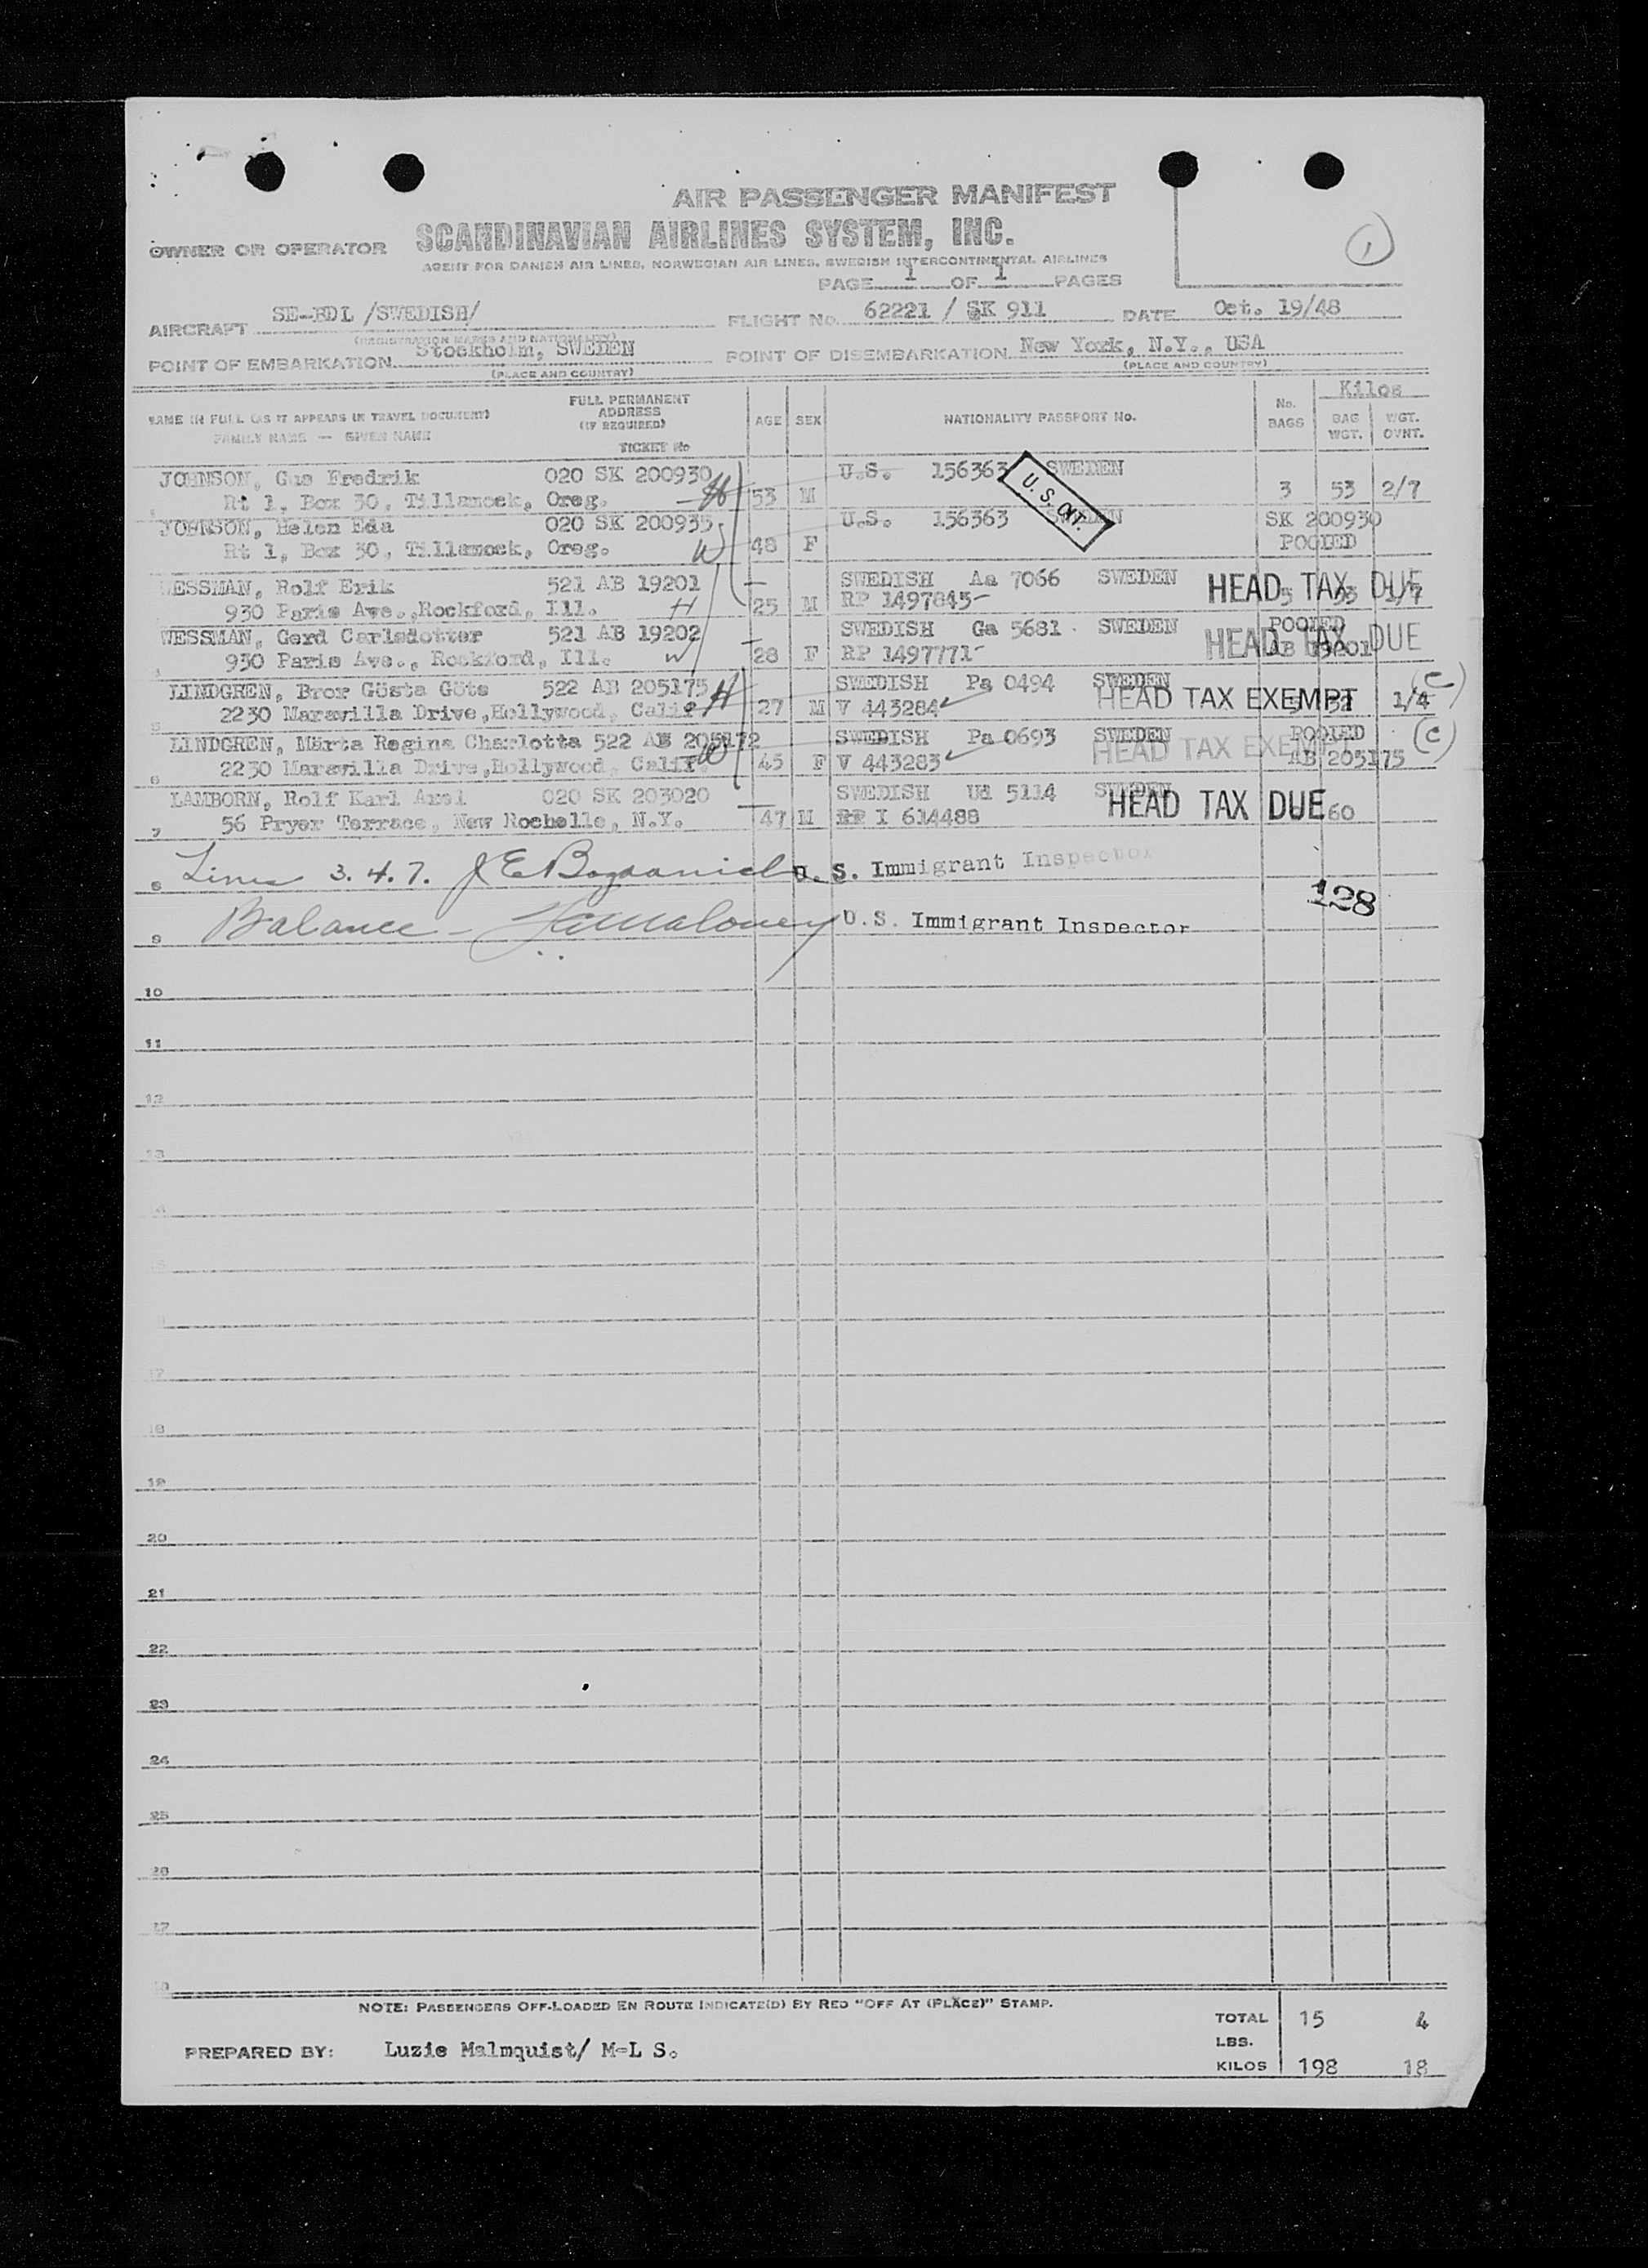 AIR PASSENGER MANIFEST
OWNER OR OPERATOR SCANDINAVIAN AIRLINES SYSTEM, INC.
AGENT FOR DANISH AIR LINES, NORWEGIAN AIR LINES, SWEDISH INTERCONTINENTAL AIRLINES
1
PAGE 1 OF 1 PAGES
AIRCRAFT SE-BDL /SWEDISH/ FLIGHT No. 62221 / SK 911 DATE Oct. 19/48
(REGISTRATION MARKS AND NATIONALITY)
POINT OF EMBARKATION Stockholm, SWEDEN POINT OF DISEMBARKATION New York, N.Y., USA
(PLACE AND COUNTRY) (PLACE AND COUNTRY)
NAME IN FULL (AS IT APPEARS IN TRAVEL DOCUMENT)
FAMILY NAME — GIVEN NAME
FULL PERMANENT ADDRESS (IF REQUIRED)
TICKET No
AGE SEX NATIONALITY PASSPORT No. No. BAGS Kilos BAG WGT. WGT. OVNT.
JOHNSON, Gus Fredrik 020 SK 200930 U.S. 156363 SWEDEN
Rt 1, Box 30, Tillamook, Oreg. H 53 M 3 53 2/7
U.S. CIT.
JOHNSON, Helen Eda 020 SK 200935 U.S. 156363 SWEDEN SK 200930
Rt 1, Box 30, Tillamook, Oreg. W 48 F POOLED
WESSMAN, Rolf Erik 521 AB 19201 SWEDISH Aa 7066 SWEDEN HEAD TAX DUE
930 Paris Ave., Rockford, Ill. H 25 M RP 1497845 5 53 1/7
WESSMAN, Gerd Carlsdotter 521 AB 19202 SWEDISH Ga 5681 SWEDEN POOLED
HEAD TAX DUE
930 Paris Ave., Rockford, Ill. W 28 F RP 1497771 AB 19201
LINDGREN, Bror Gösta Göte 522 AB 205175 SWEDISH Pa 0494 SWEDEN (C)
2230 Maravilla Drive, Hollywood, Calif H 27 M V 443284 HEAD TAX EXEMPT 1/4
LINDGREN, Märta Regina Charlotta 522 AB 205172 SWEDISH Pa 0693 SWEDEN POOLED (C)
2230 Maravilla Drive, Hollywood, Calif W 45 F V 443283 HEAD TAX EXEMPT AB 205175
LAMBORN, Rolf Karl Axel 020 SK 203020 SWEDISH Ud 5114 SWEDEN
56 Pryer Terrace, New Rochelle, N.Y. 47 M RP I 614488 HEAD TAX DUE 60
Lines 3. 4. 7. U. S. Immigrant Inspector
128
Balance - U.S. Immigrant Inspector
10
11
12
13
17
18
19
20
21
22
23
24
25
26
27
NOTE: PASSENGERS OFF-LOADED EN ROUTE INDICATE(D) BY RED "OFF AT (PLACE)" STAMP.
TOTAL 15 4
LBS.
PREPARED BY: Luzie Malmquist/ M-L S.
KILOS 198 18